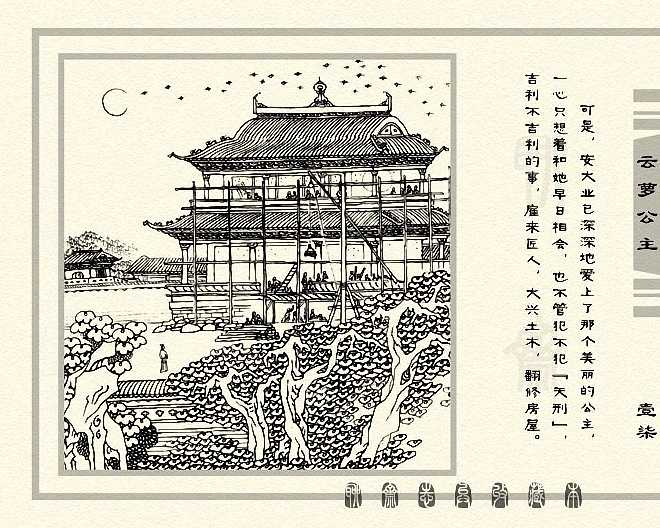 云萝公主
壹柒
可是，安大业已深深地爱上了那个美丽的公主，
一心只想着和她早日相会，也不管犯不犯「天刑」，
吉利不吉利的事，雇来匠人，大兴土木，翻修房屋。
聊斋志异收藏本